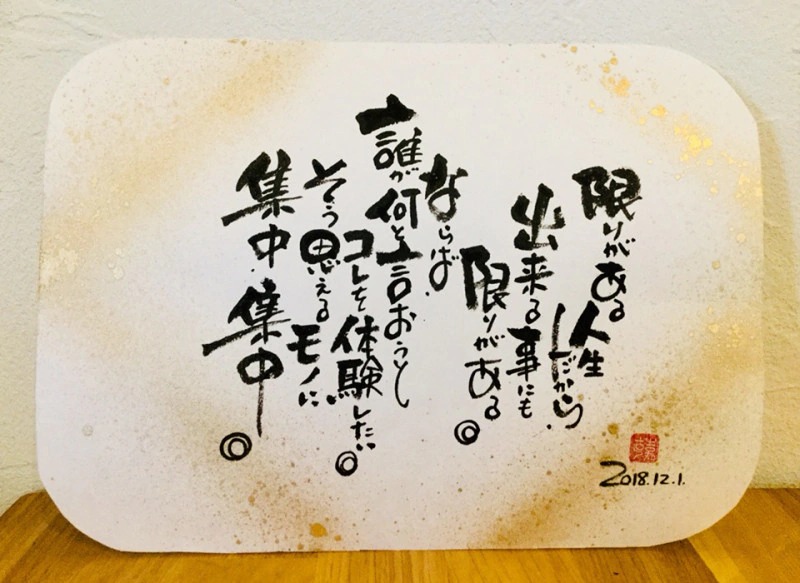 限りがある
人生
だから
出来る事にも
限りがある◎
ならば
誰が何と言おうと
コレを体験したい◎
そう思える
モノに
集中.集中◎
2018.12.1.